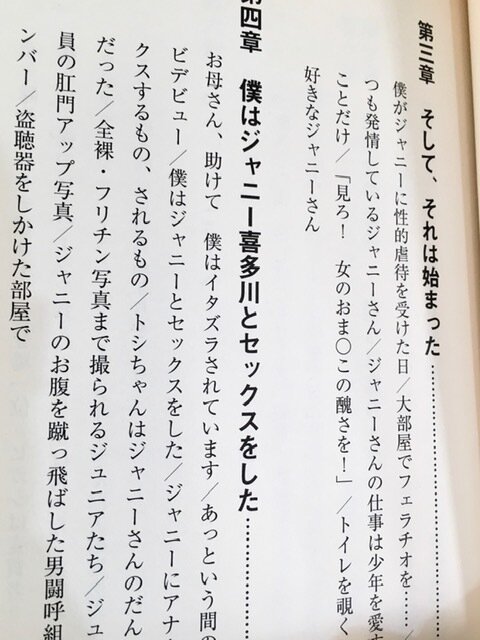 第三章　そして、それは始まった…………………
僕がジャニーに性的虐待を受けた日/大部屋でフェラチオを……
つも発情しているジャニーさん/ジャニーさんの仕事は少年を愛す
ことだけ/「見ろ!　女のおま〇この醜さを!」/トイレを覗く
好きなジャニーさん
第四章　僕はジャニー喜多川とセックスをした…………
お母さん、助けて　僕はイタズラされています/あっという間の
ビデビュー/僕はジャニーとセックスをした/ジャニーにアナ
クスするもの、されるもの/トシちゃんはジャニーさんのだん
だった/全裸・フリチン写真まで撮られるジュニアたち/ジュ
員の肛門アップ写真/ジャニーのお腹を蹴っ飛ばした男闘呼組
ンバー/盗聴器をしかけた部屋で